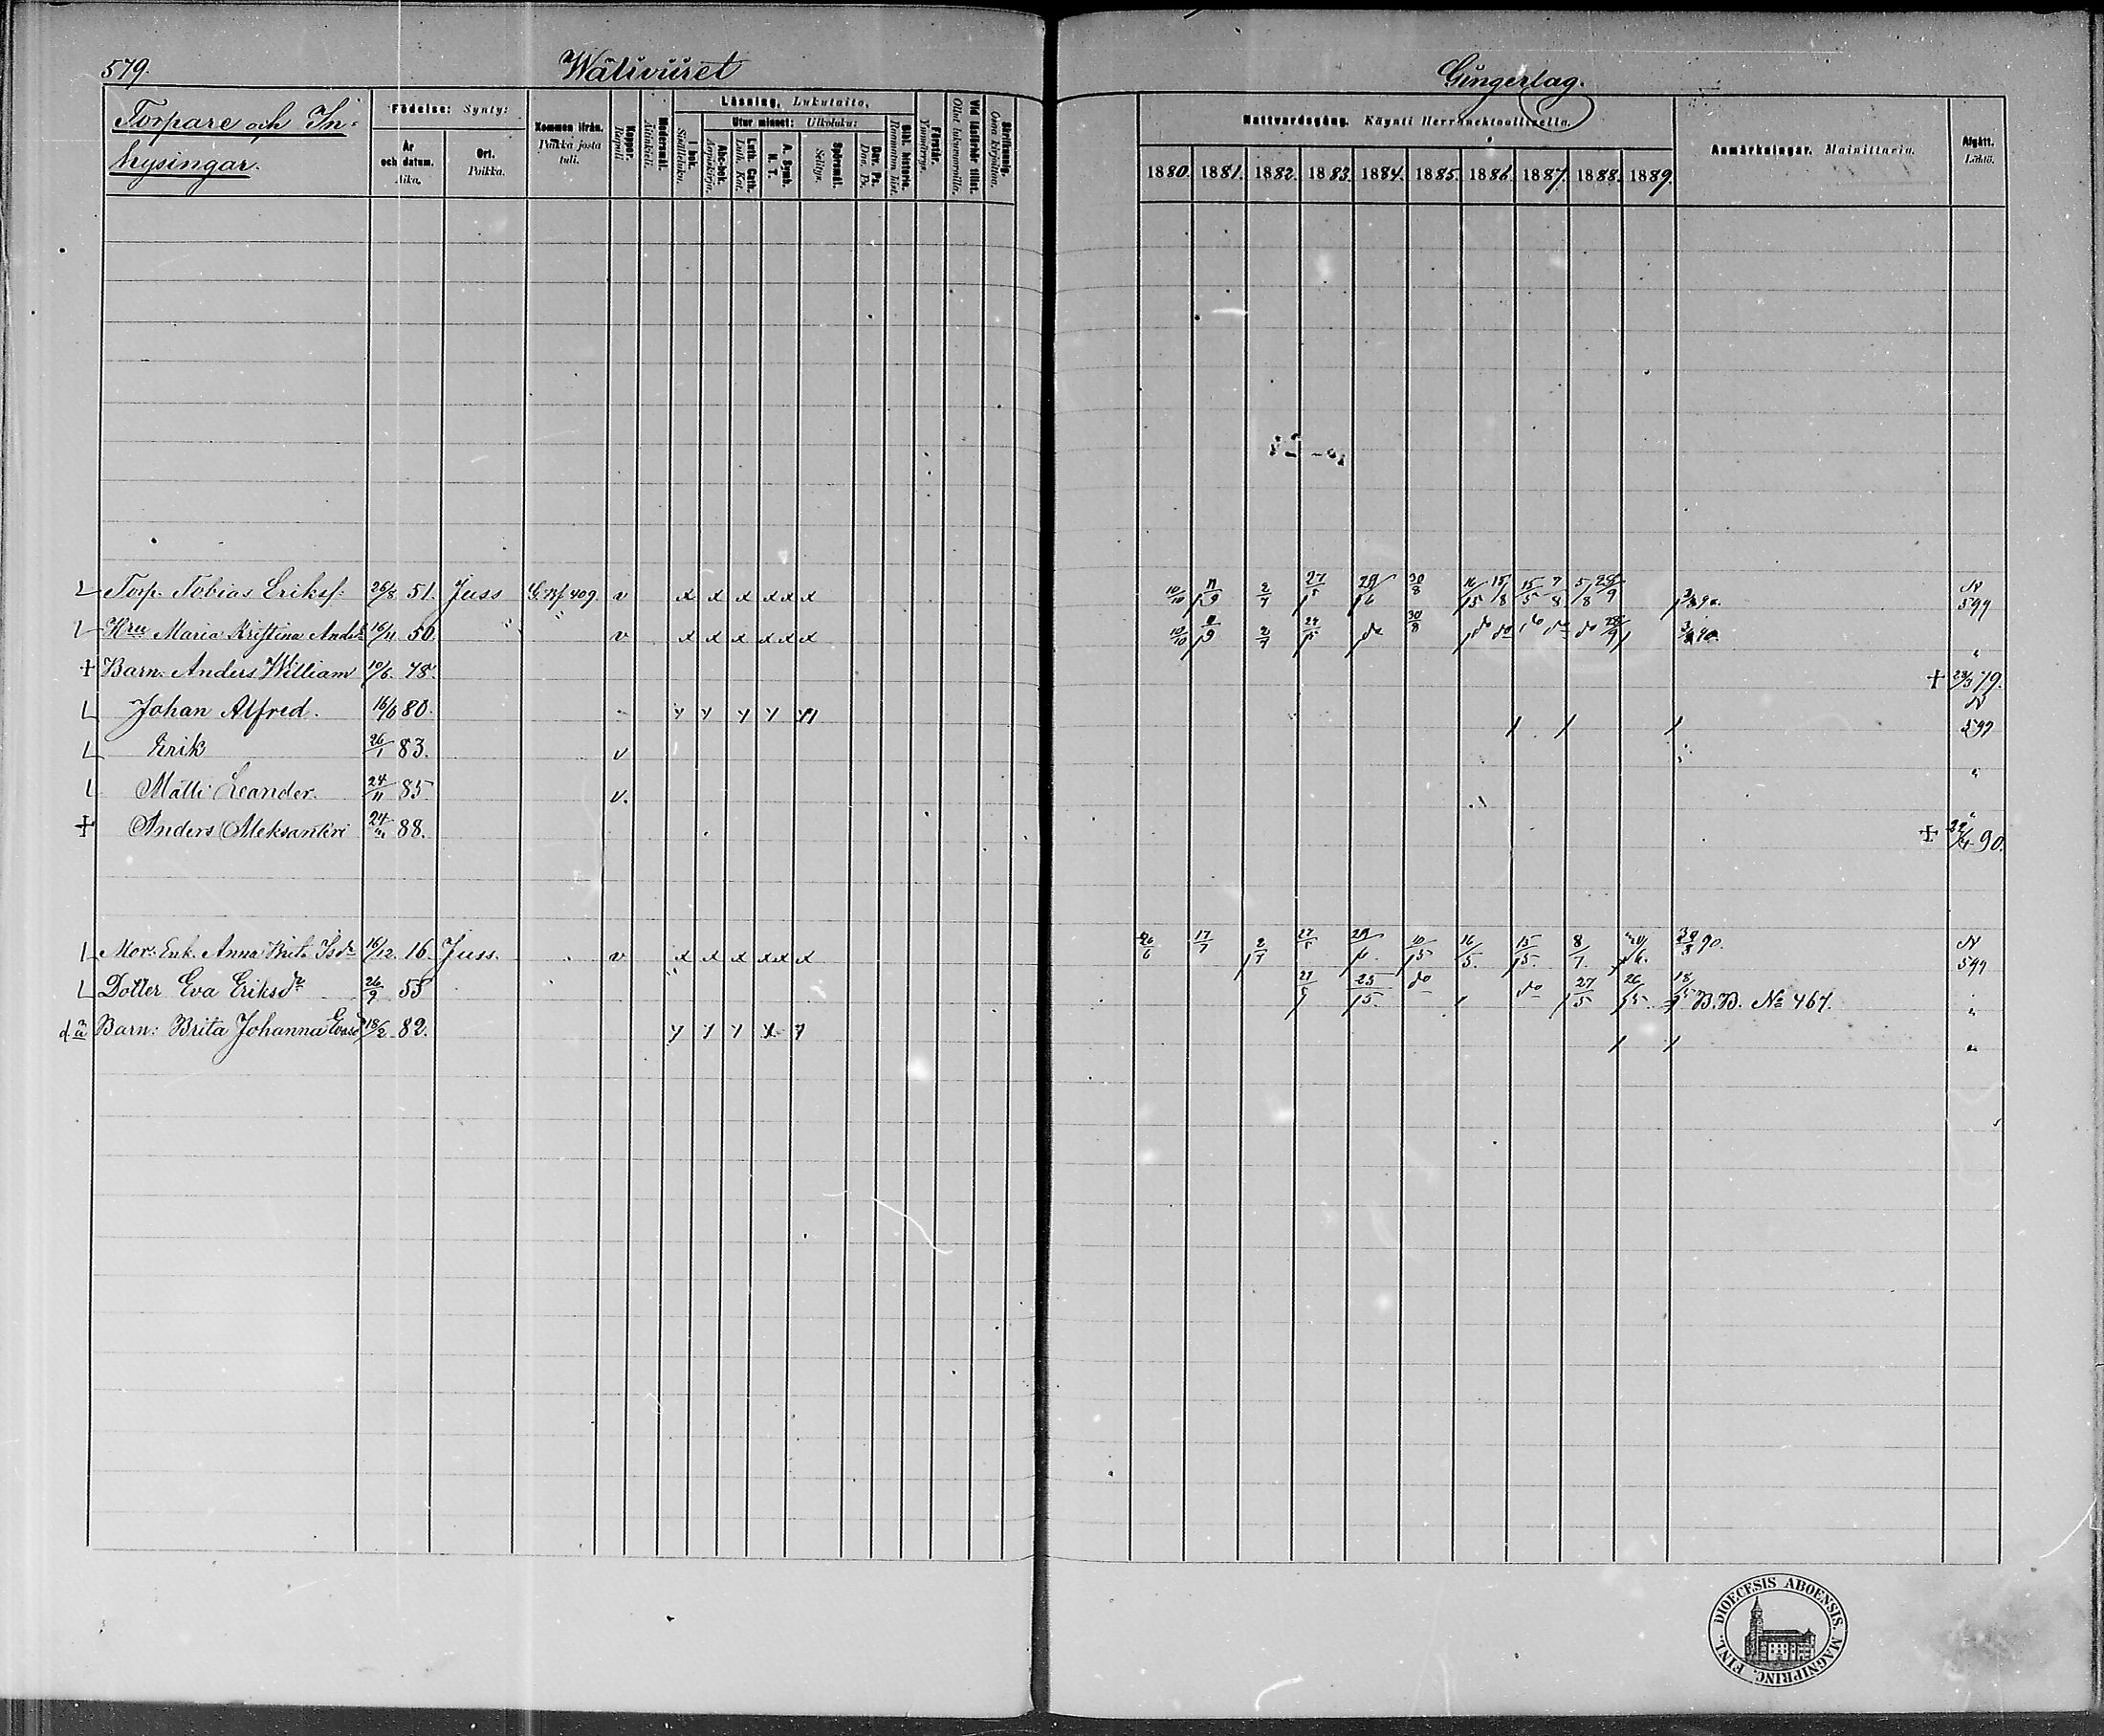 579.
Wälivüset
Güngerlag.
Torpare och In-
hysingar.
Födelse: Synty:
År och datum. Aika.
Ort. Paikka.
Kommen ifrån. Paikka josta tuli.
Koppor. Rupuli
Modersmål. Äitinkieli.
Läsning, Lukutaito,
I bok. Sisälluku.
Utur minnet: Ulkoluku:
Abc-bok. Aapiskirja.
Luth. Cath. Luth. Kat.
A. Symb. H. T.
Spörsmål. Selitys.
Dav. Ps. Dav. Ps.
Bibl. historia. Raamatun hist.
Förstår. Ymmärrys.
Vid läsförhör tillst. Ollut lukukunnilla.
Skrifkunnig. Osaa kirjoittaa.
Nattvardsgång. Käynti Herranehtoollisella.
1880. 1881. 1882. 1883. 1884. 1885. 1886. 1887. 1888. 1889.
Anmärkningar. Mainittavia.
Afgått. Lähtö.
L Torp. Tobias Eriksf. 26/8 51. Juss v x x x x x x 10/10 2/7 27/5 29/6 30/8 16/5 15/8 15/5 7/8 5/8 28/9 N 599
L Hru Maria Kristina Andsdr 16/11 50. v x x x x x x 10/10 2/7 do 30/8 do do do do do 28/9 "
+ Barn. Anders William 10/6. 78. + 79.
L Johan Alfred. 16/6 80. y y y y y N 599
L Erik 26/1 83. v
L Matti Leander. 24/11 85. v. "
+ Anders Aleksanteri 24/ 88. " + 22/4 90.
L Mor: Enk. Anna Brita Isdr 16/12. 16. Juss. v x x x x x x 26/6 17/7 2/7 27/5 29/6. 10/5 16/5. 15/5. 8/7. /6. 90. N 599
L Dotter Eva Eriksdr 26/9 55 27/5 25/5. do do 27/5 26/5 18/5 B.B. No 467. "
Barn: Brita Johanna Evasdr 18/2. 82. y y y x y "
FINL. DIOECESIS ABOENSIS. MAGNIPRINC.